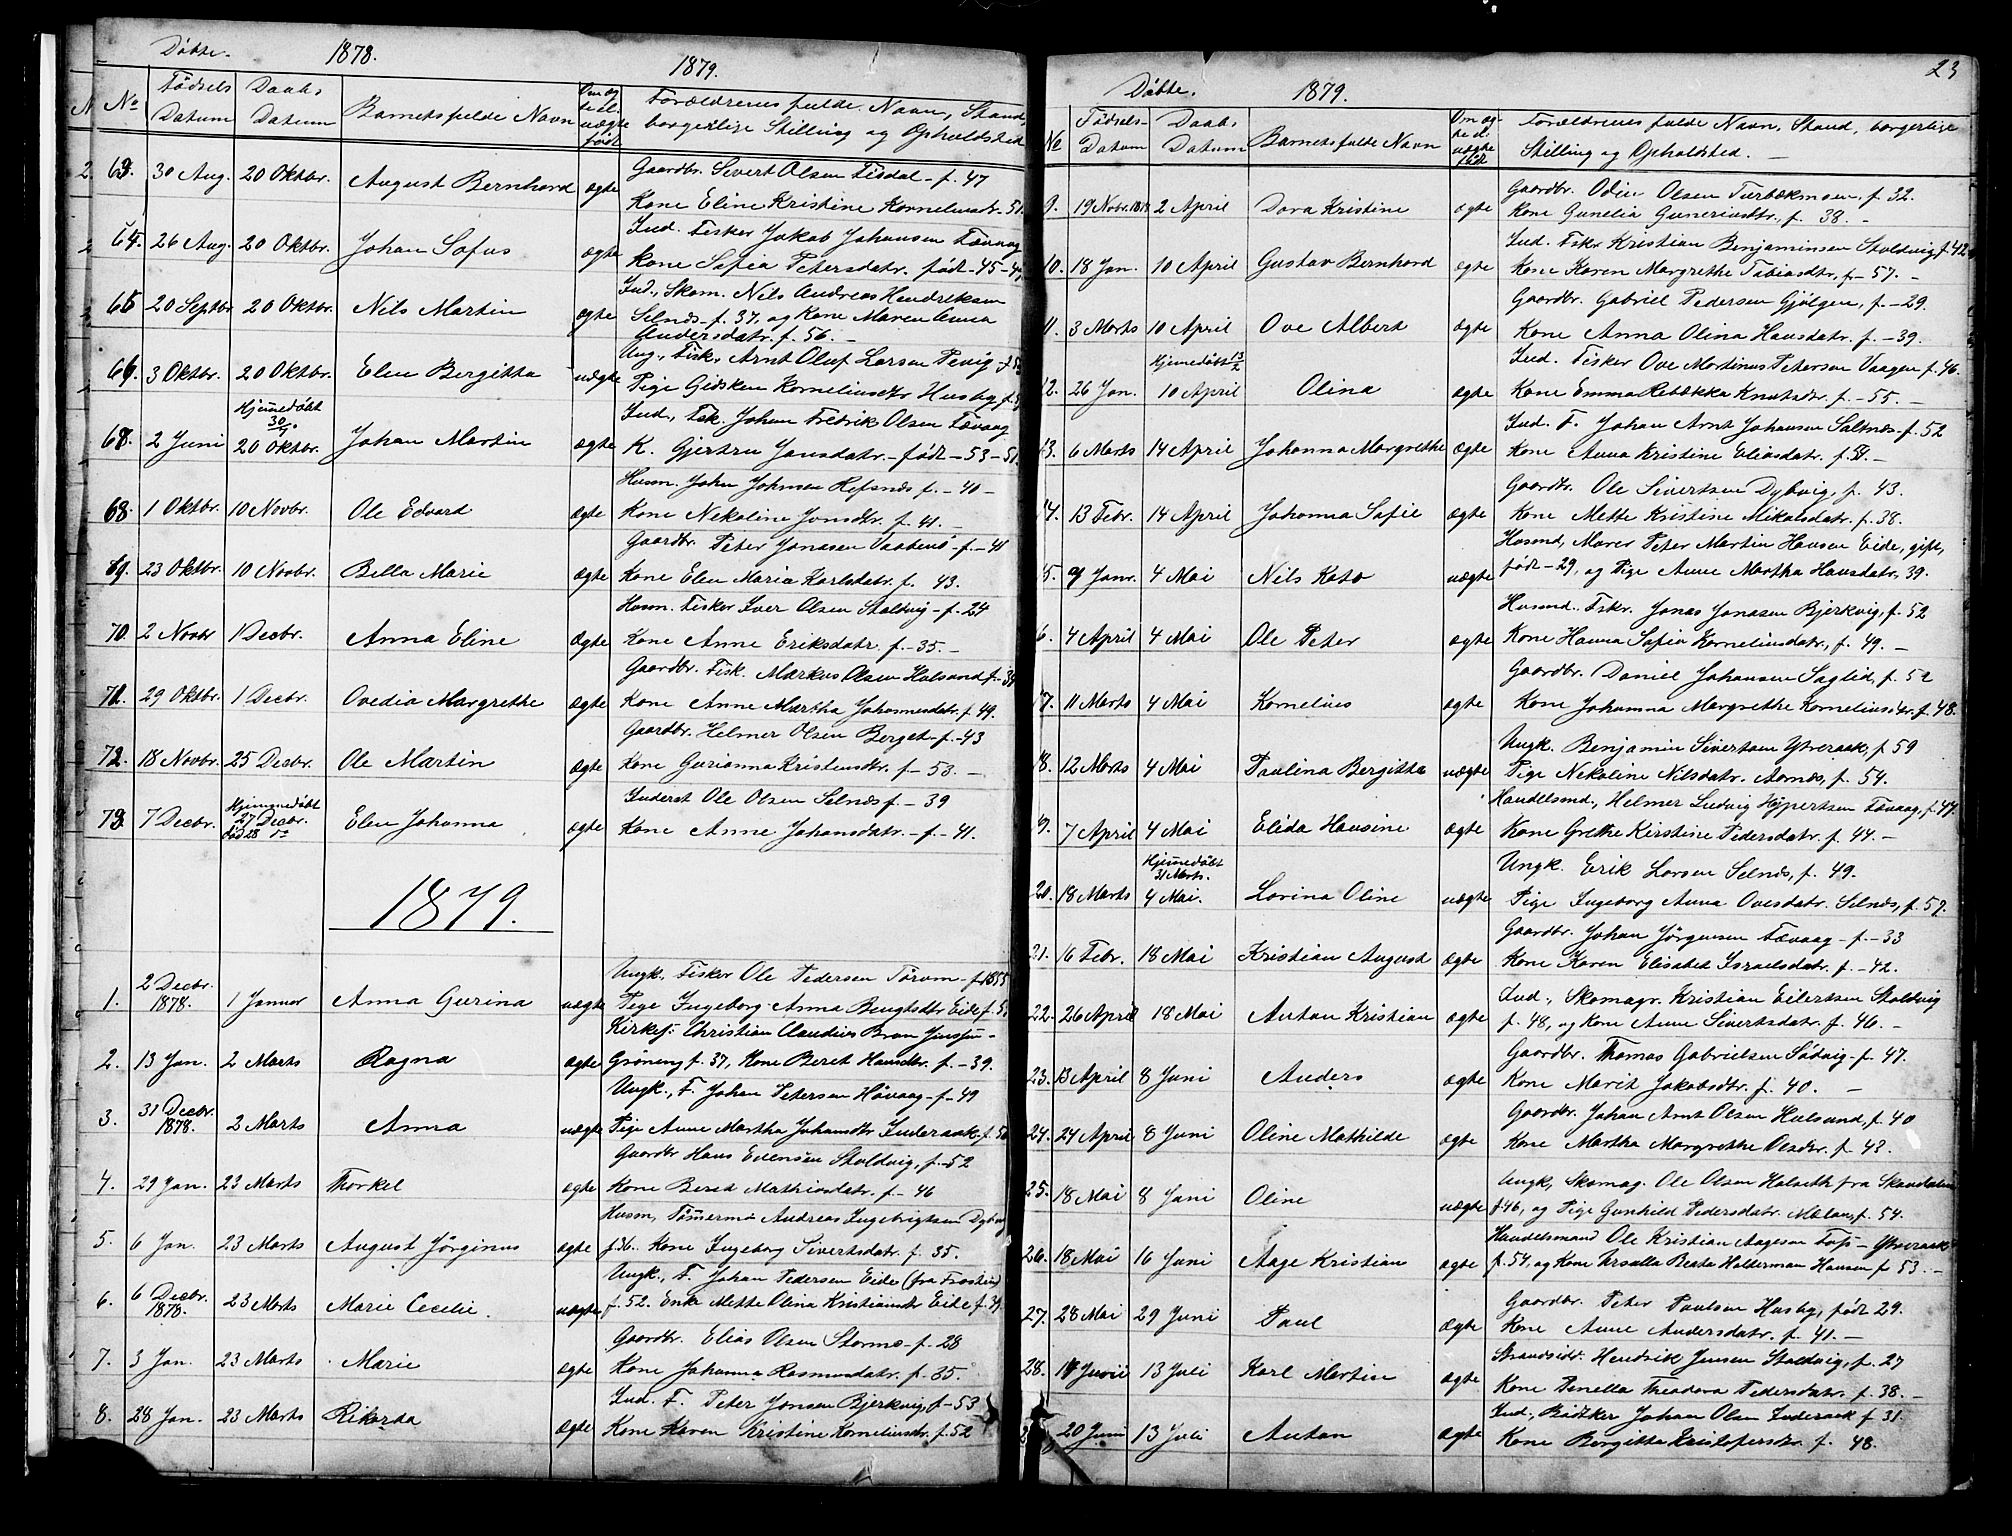 Døbte. 1878. 1879.
No
Fødsels Datum
Daabs Datum
Barnets fulde Navn
Om ægte el. uægte født
Forældrenes fulde Navn, Stand, borgerlige Stilling og Opholdsted
63. 30 Aug. 20 Oktbr. August Bernhard ægte Gaardbr. Sivert Olsen Tisdal - f. 47
Kone Eline Kristine Korneliusdtr.
64. 26 Aug. 20 Oktbr. Johan Sofus ægte Ind. Fisker Jakob Johansen Tævaag
Kone Sofia Petersdatr. født - 45 -
65 20 Septbr. 20 Oktbr. Nils Martin ægte Ind., Skom. Nils Andreas Hendriksen
Selnæs - f. 37, og Kone Maren Anna
Andersdatr. f. 56. -
66. 3 Oktbr. 20 Oktbr. Elen Bergitta uægte Ung., Fisk. Arnt Oluf Larsen Tevig
Pige Gidsken Korneliusdtr Husby
67. 2 Juni Hjemmedøbt 30/7 20 Oktbr. Johan Martin ægte Ind., Fsk. Johan Fredrik Olsen Tævaag
K. Gjertru Jonsdatr. - født - 53 - 51.
68. 1 Oktbr. 10 Novbr. Ole Edvard ægte Husm. John Johnsen Hefsnæs f. - 40 -
Kone Nekoline Jonsdtr. f. 41. -
69. 23 Oktbr. 10 Novbr. Bella Marie ægte Gaardbr. Peter Jonasen Vaabenö - f. - 41
Kone Elen Maria Karlsdatr. f. 43.
70. 2 Novbr 1 Decbr. Anna Eline ægte Husm. Fisker Iver Olsen Stoldvig - f. 24
Kone Anne Eriksdatr. f. - 35. -
71. 29 Oktbr. 1 Decbr. Ovedia Margrethe ægte Gaardbr. Fisk. Markus Olsen Hulsund f. - 39
Kone Anne Martha Johannesdatr. f. 49.
72. 18 Novbr. 25 Decbr. Ole Martin ægte Gaardbr. Helmer Olsen Berget - f. - 43
Kone Gurianna Kristensdtr. f. - 53. -
73. 7 Decbr. Hjemmedøbt 27 Decbr. død 28 do Elen Johanna ægte Inderst Ole Olsen Selnæs f. - 39
Kone Anne Johansdatr. - f. - 41.
1879.
1. 2 Decbr. 1878. 1 Januar Anna Gurina uægte Ungk., Fisker Ole Pedersen Tørum - f. 1855
Pige Ingeborg Anna Bengtsdtr Eide f.
2. 13 Jan. 2 Marts Ragna ægte Kirkesj: Christian Claudius Bran
Grøning f. 37, Kone Beret Hansdtr. f. - 39.
3. 31 Decbr. 1878. 2 Marts Anna uægte Ungk., F. Johan Petersen Hövaag - f. - 49
Pige Anne Martha Johansdtr Inderaak, f.
4. 29 Jan. 23 Marts Thorkel ægte Gaardbr Hans Evensen Stoldvig, f. - 52
Kone Beret Mathiasdatr. f. - 46
5. 6 Jan. 23 Marts August Jørginus ægte Husm, Tømmerm. Andreas Ingebrigtsen Dybvig
f. 36. Kone Ingeborg Sivertsdatr. f. 35.
6. 6 Decbr. 1878. 23 Marts Marie Cecilie. uægte Ungk., F. Johan Pedersen Eide (fra Frosten)
f. 52. Enke Mette Olina Kristiansdtr Eide f. 39.
7. 3 Jan. 23 Marts Marie ægte Gaardbr. Elias Olsen Stormo - f. 28
Kone Johanna Rasmusdatr. f. 35.
8. 28 Jan. 23 Marts Rikarda ægte Ind. F. Peter Jonsen Bjerkvig, f. - 53
Kone Karen Kristine Korneliusdtr. f. 52
Døbte. 1879. 23
No
Fødsels Datum
Daabs Datum
Barnets fulde Navn
Om ægte el. uægte født
Forældrenes fulde Navn, Stand, borgerlige
Stilling og Opholdsted. -
9. 19 Novbr. 1878 2 April Dora Kristine ægte Gaardbr. Odin Olsen Turbækmoen, f. 32.
Kone Gunelia Guneriusdtr, f. 38. -
10. 18 Jan. 10 April Gustav Bernhard ægte Ind. Fskr Kristian Benjaminsen Stoldvig f. 42
Kone Karen Margrethe Tobiasdtr, f. - 57. -
11. 3 Marts 10 April Ove Albert ægte Gaardbr. Gabriel Pedersen Gjölgen, f. - 29.
Kone Anna Olina Hansdatr. f. - 39.
12. 26 Jan. Hjemmedøbt 13/2 10 April Olina ægte Ind. Fisker Ove Martinus Petersen Vaagen f. 46.
Kone Emma Rebækka Knutsdtr. f. - 55. -
13. 6 Marts 14 April Johanna Margrethe ægte Ind. F. Johan Arnt Johansen Saltnæs - f. 52
Kone Anna Kristine Eliasdatr. f. 51. -
14. 13 Febr. 14 April Johanna Sofie ægte Gaardbr. Ole Sivertsen Dybvig, f. 43.
Kone Mette Kristine Mikalsdatr. f. 38.
15. 9 Janr. 4 Mai Nils Kato uægte Husmd, Murer Peter Martin Hansen Eide, gift,
født - 29, og Pige Anne Martha Hansdatr, 39.
16. 4 April 4 Mai Ole Peter ægte Husmd. Fskr. Jonas Jonasen Bjerkvig, f. 52
Kone Hanna Sofia Korneliusdatr., f. 49. -
17. 11 Marts 4 Mai Kornelius ægte Gaardbr. Daniel Johansen Saglid, f. 52
Kone Johanna Margrethe Korneliusdtr. f. 48.
18. 12 Marts 4 Mai Paulina Bergitta uægte Ungk. Benjamin Sivertsen Ytreraak, f. 59
Pige Nekoline Nilsdatr. Aarnæs, f. 54.
19. 7 April 4 Mai Elida Hansine ægte Handelsmd., Helmer Ludvig Hypertsen Tævaag, f. 47.
Kone Grethe Kirstine Pedersdatr. f. 44. -
20. 18 Marts Hjemmedøbt 31 Marts. 4 Mai. Lorina Oline uægte Ungk. Erik Larsen Selnæs, f. 49.
Pige Ingeborg Anna Ovesdatr. Selnæs, f. 59.
21. 16 Febr. 18 Mai Kristian August ægte Gaardbr. Johan Jørgensen Tævaag - f. - 33
Kone Karen Elisabed Israelsdatr. f. - 42.
22. 26 April 18 Mai Anton Kristian ægte Ind., Skomagr. Kristian Eilertsen Stoldvig
f. 48, og Kone Anne Sivertsdatr. f. 46. -
23. 13 April 8 Juni Anders ægte Gaardbr. Thomas Gabrielsen Södvig - f. 47.
Kone Marit Jakobsdtr. f. 40. -
24. 24 April 8 Juni Oline Mathilde ægte Gaardbr. Johan Arnt Olsen Hulsund, f. 40
Kone Martha Margrethe Olsdtr. f. 43.
25. 18 Mai 8 Juni Oline uægte Ungk, Skomag. Ole Olsen Halseth fra Skaudalen
f. 46, og Pige Gunhild Pedersdatr. Mælan, f. 54.
26. 18 Mai 16 Juni Aage Kristian ægte Handelsmand Ole Kristian Aagesen Foss - Ytreraak
f. 54, og Kone Ursella Beata Halterman Hansen f 53. -
27. 28 Mai 29 Juni Paul ægte Gaardbr. Peter Paulsen Husby, født 29.
Kone Anne Andersdatr. f. 41. -
28. 14 Juni 13 Juli Karl Martin ægte Strandsidr. Hendrik Jensen Stoldvig, f. 27
Kone Penella Theodora Pedersdatr. f. 38. -
20 Juni 13 Juli Anton ægte Ind., Bødker Johan Olsen Inderaak f 31.
Kone Bergitta Kristofersdtr. f. 48.